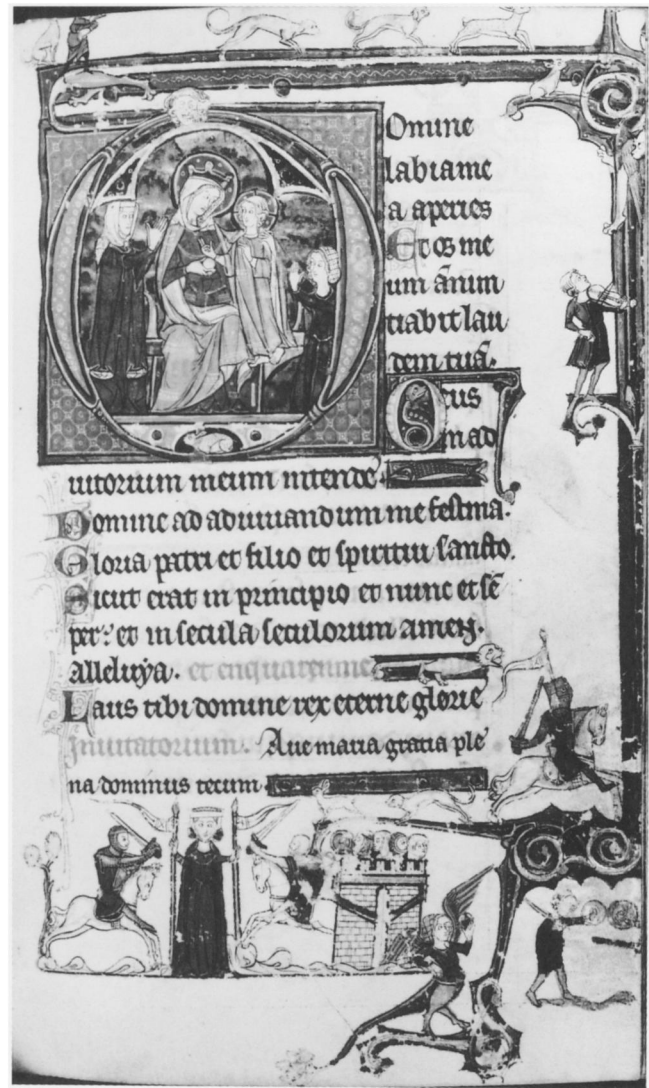 Omine
labia me
a aperies
Et os me
um ānun
tiabit lau
dem tuā.
Deus
in ad
iutorium meum intende
Domine ad adiuuandum me festina.
Gloria patri et filio et spiritui sancto.
Sicut erat in principio et nunc et sē
per: et in secula seculorum amen.
alleluya. et
Laus tibi domine rex eterne glorie
Inuitatorium. Aue maria gratia ple
na dominus tecum